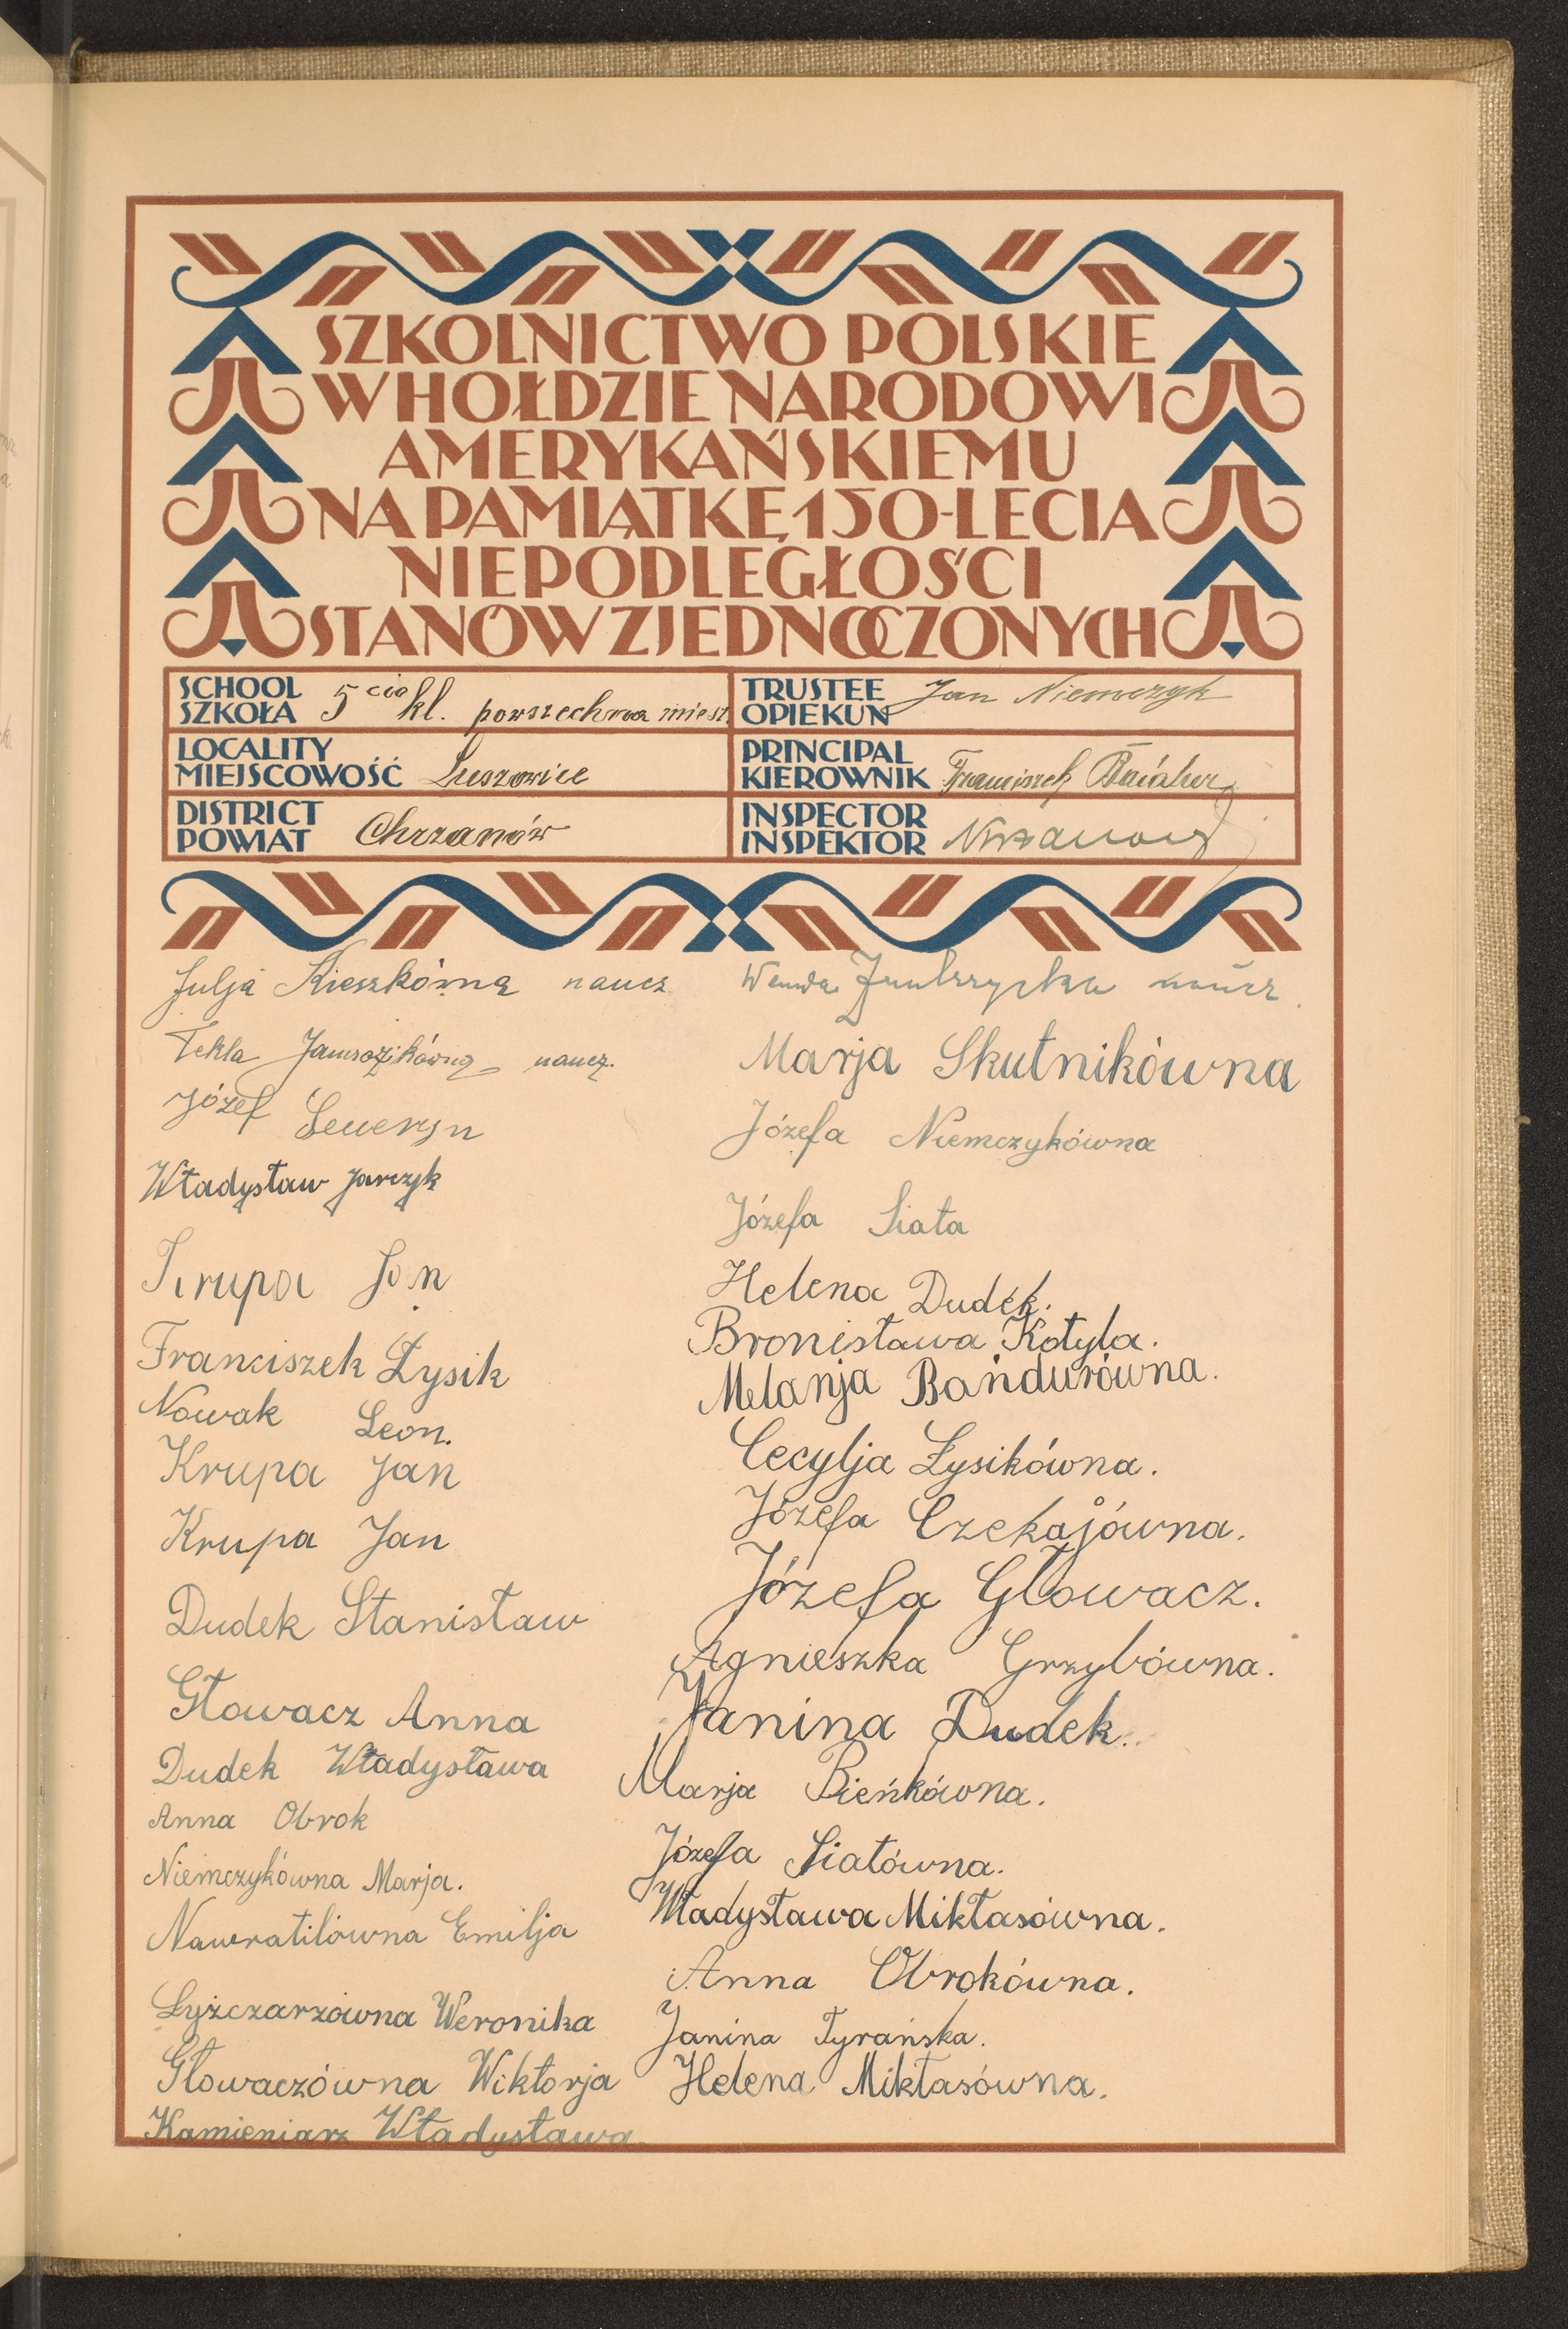 SZKOLNICTWO POLSKIE
W HOŁDZIE NARODOWI
AMERYKAŃSKIEMU
NA PAMIĄTKĘ 150-LECIA
NIEPODLEGŁOŚCI
STANÓW ZJEDNOCZONYCH
SCHOOL
SZKOŁA
5 cio kl. powszechna miesz.
TRUSTEE
OPIEKUN
Jan Niemczyk
LOCALITY
MIEJSCOWOŚĆ
Luszowice
PRINCIPAL
KIEROWNIK
Franciszek
DISTRICT
POWIAT
Chrzanów
INSPECTOR
INSPEKTOR
Julja naucz
Tekla Jamrozikówna naucz.
Józef Seweryn
Władysław Jarczyk
Krupa Jan
Franciszek Łysik
Nowak Leon.
Krupa Jan
Krupa Jan
Dudek Stanisław
Głowacz Anna
Dudek Władysława
Anna Obrok
Niemczykówna Marja.
Nawratilówna Emilja
Łyżczarzówna Weronika
Głowaczówna Wiktorja
Kamieniarz Władysława.
Wanda naucz.
Marja Skutnikówna
Józefa Niemczykówna
Józefa Siata
Helena Dudek.
Bronisława Kotyla.
Melanja Bańdurówna.
Cecylja Łysikówna.
Józefa Czekajówna.
Józefa Głowacz.
Agnieszka Grzybówna.
Janina Dudek.
Marja Bieńkówna.
Józefa Siatówna.
Władysława Mikłasówna.
Anna Obrokówna.
Janina Tyrańska.
Helena Mikłasówna.